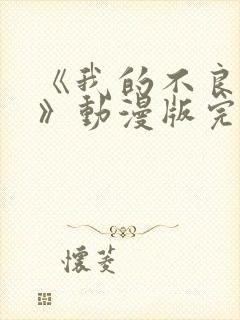 《我的不良
》動漫版完
懷菱